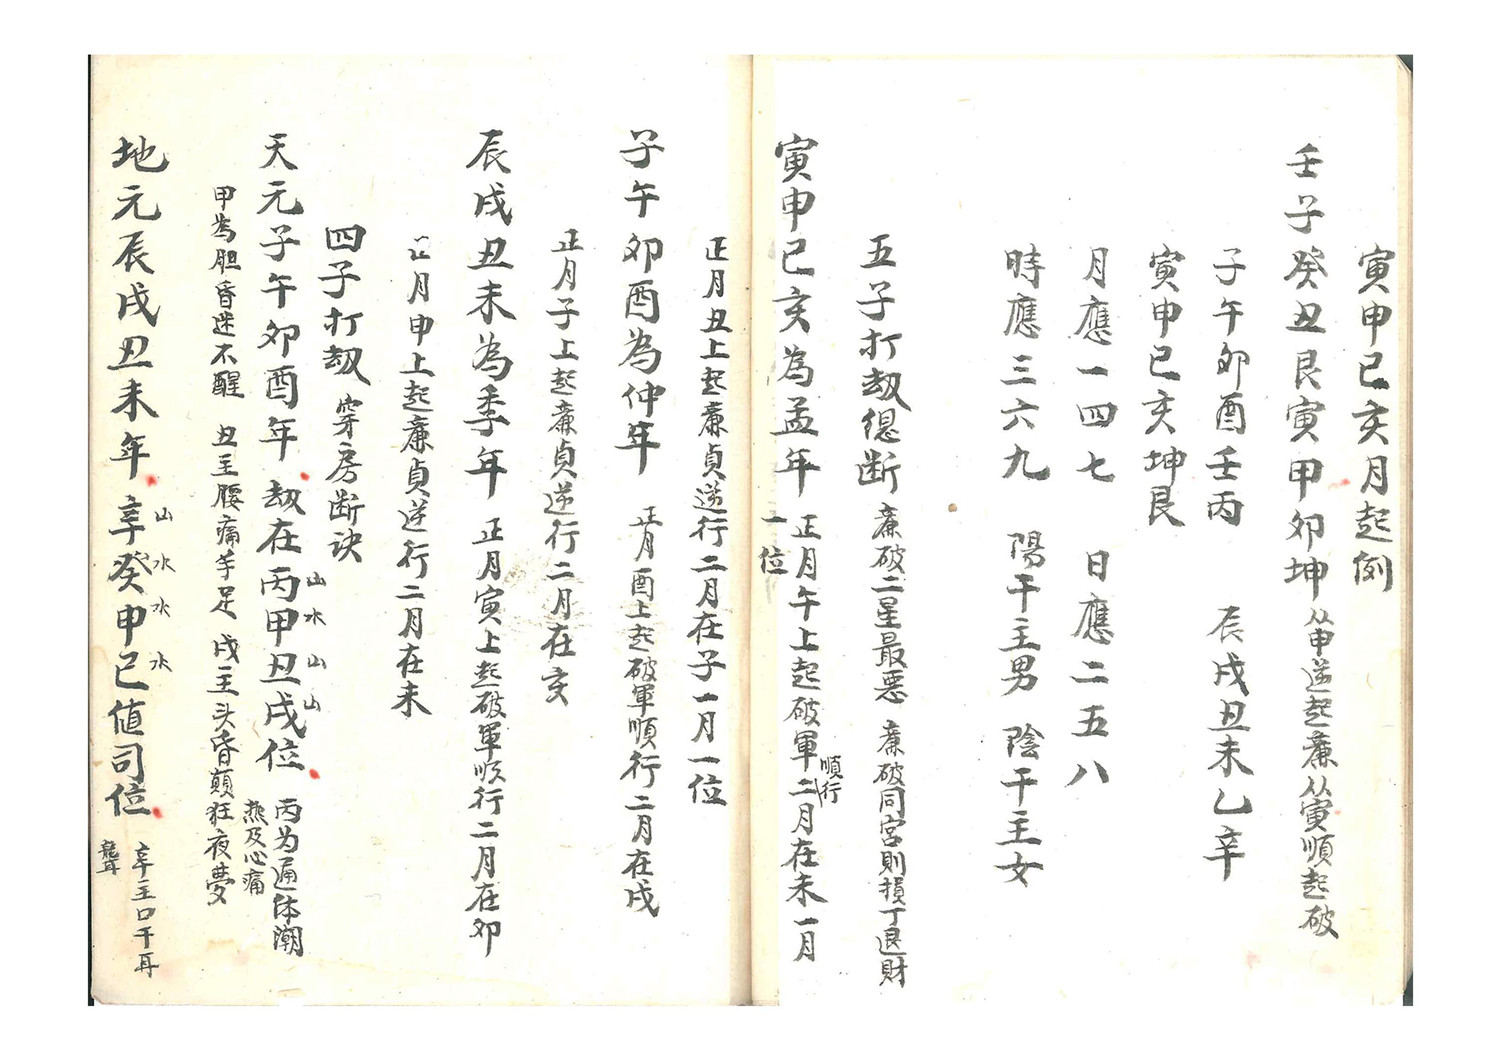 寅申巳亥月起例
壬子癸丑艮寅甲卯坤从申逆起廉从寅順起破
子午卯酉壬丙　辰戌丑未乙辛
寅申巳亥坤艮
月應一四七　日應二五八
時應三六九　陽干主男　陰干主女
五子打刼總断　廉破二星最悪　廉破同宮則損丁退財
寅申巳亥為孟年　正月午上起破軍順行二月在未一月一位
正月丑上起廉貞逆行二月在子一月一位
子午卯酉為仲年　正月酉上起破軍順行二月在戌
正月子上起廉貞逆行二月在亥
辰戌丑未為季年　正月寅上起破軍順行二月在卯
正月申上起廉貞逆行二月在未
四子打刼　穿房断诀
天元子午卯酉年　刼在丙甲丑戌位　丙为遍体潮热及心痛
山水山山
甲為胆昏迷不醒　丑主腰痛手足　戌主头昏顛狂夜夢
地元辰戌丑未年　辛癸申巳値司位　辛主口干耳聾
山水水水